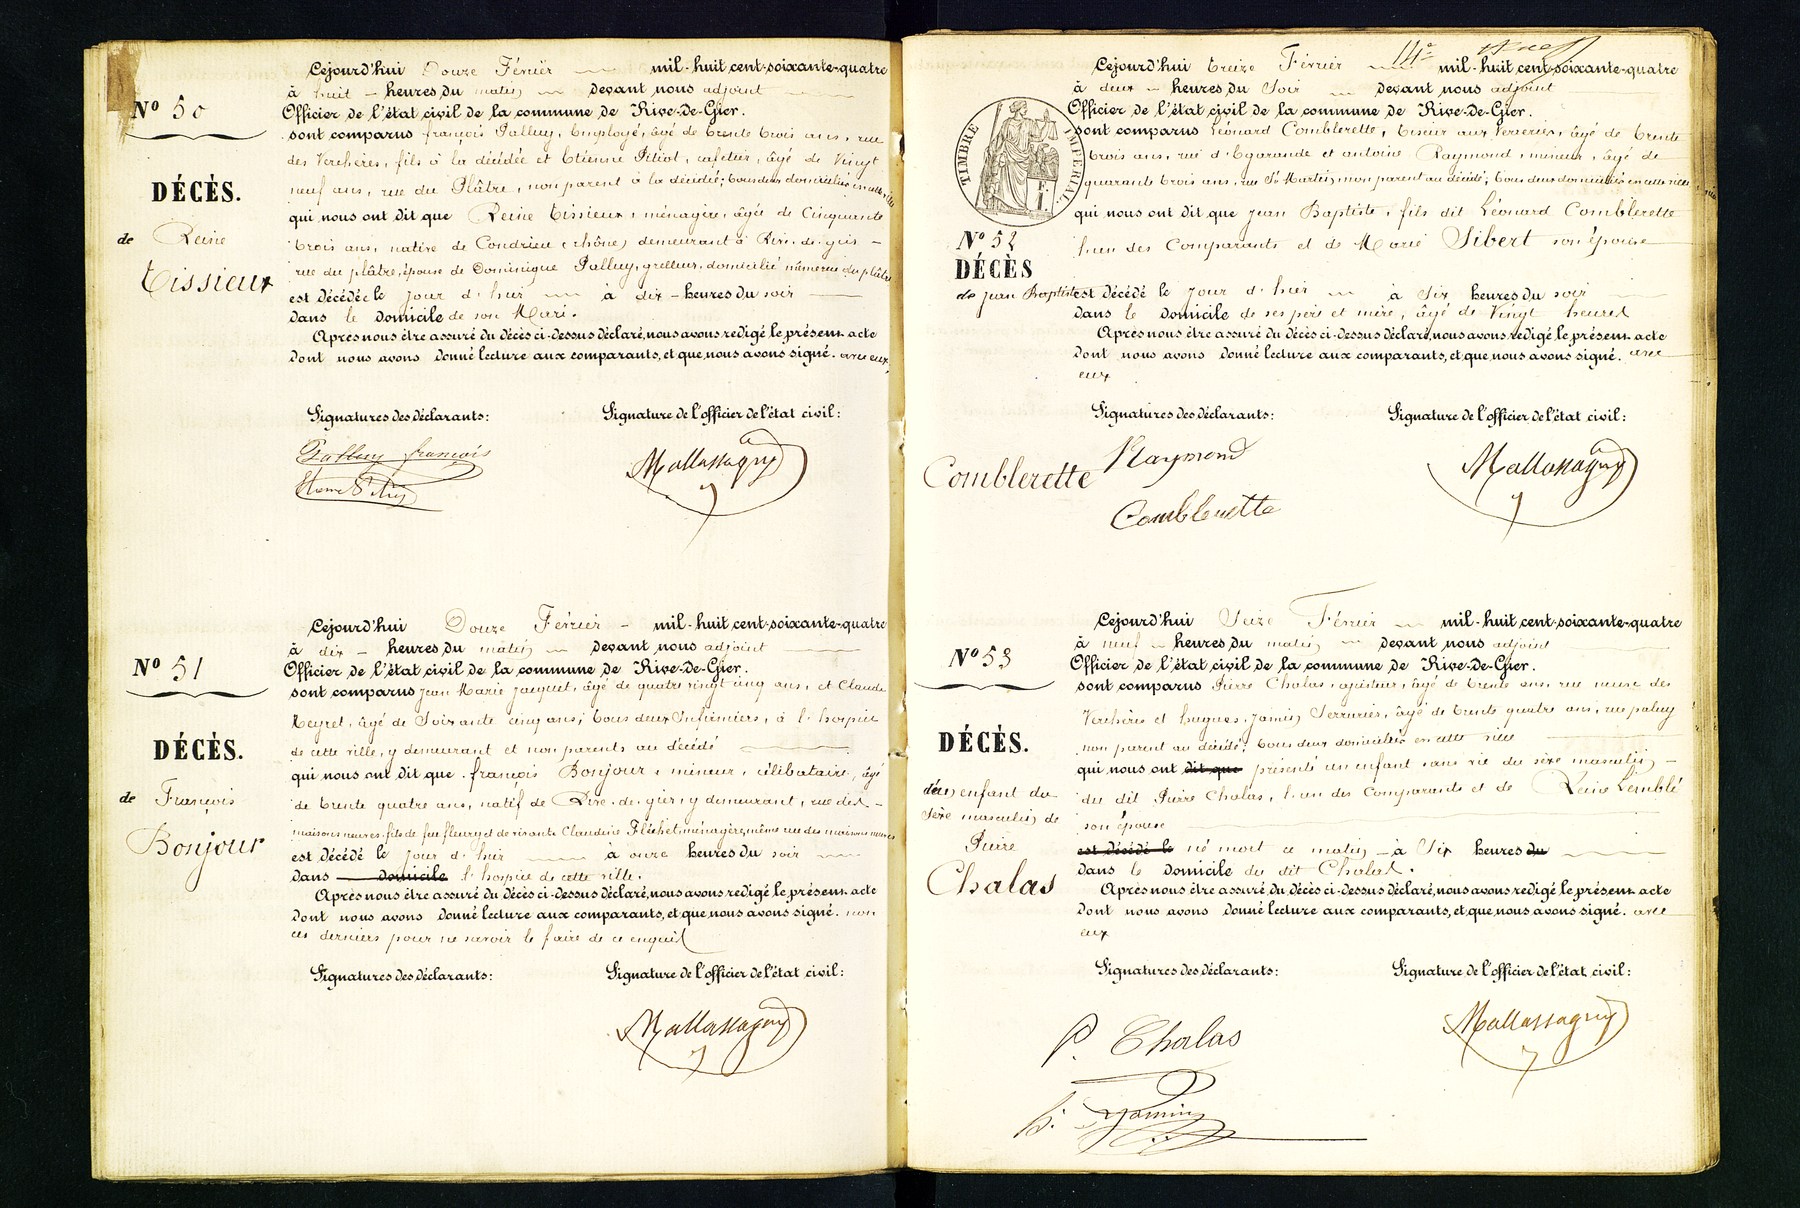 Nº 50
DÉCÈS.
de Reine
Tissieux
Cejourd'hui Douze Février mil-huit cent-soixante-quatre
à huit heures du matin devant nous adjoint
Officier de l'état civil de la commune de Rive-De-Gier.
sont comparus françois Palluy, employé, âgé de trente trois ans, rue
des Verchères, fils à la décédée et Etienne Pitiot, cafetier, âgé de vingt
neuf ans, rue du Plâtre, non parent à la décédée; tous deux domiciliés en cette ville
qui nous ont dit que Reine Tissieux, ménagère, âgée de Cinquante
trois ans, native de Condrieu (rhône) demeurant à Rive-de-gier
rue du plâtre, épouse de Dominique Palluy, grelleur, domicilié même rue du plâtre
est décédée le jour d'hier à dix heures du soir
dans le domicile de son Mari.
Après nous être assuré du décès ci-dessus déclaré, nous avons redigé le présent acte
dont nous avons donné lecture aux comparants, et que nous avons signé. avec eux,
Signatures des déclarants:
Signature de l'officier de l'état civil:
Palluy françois
Mallassagny
Nº 51
DÉCÈS.
de François
Bonjour
Cejourd'hui Douze Février mil-huit cent-soixante-quatre
à dix heures du matin devant nous adjoint
Officier de l'état civil de la commune de Rive-De-Gier.
sont comparus Jean Marie Jacquet, âgé de quatre vingt cinq ans, et Claude
Neyret, âgé de Soixante cinq ans; tous deux Infirmiers, à l'hospice
de cette ville, y demeurant et non parents au décédé
qui nous ont dit que françois Bonjour, mineur, célibataire, âgé
de trente quatre ans, natif de Rive-de-gier, y demeurant, rue des
maisons neuves, fils de feu fleury et de vivante Claudine Fléchet, ménagère, même rue des maisons neuves
est décédé le jour d'hier à onze heures du soir
dans domicile l'hospice de cette ville.
Après nous être assuré du décès ci-dessus déclaré, nous avons redigé le présent acte
dont nous avons donné lecture aux comparants, et que nous avons signé. non
ces derniers pour ne savoir le faire de ce enquis
Signatures des déclarants:
Signature de l'officier de l'état civil:
Mallassagny
14e
TIMBRE IMPERIAL
1 F.
Nº 52
DÉCÈS
de Jean Baptiste
Comblerette
Cejourd'hui treize Février mil-huit cent-soixante-quatre
à deux heures du Soir devant nous adjoint
Officier de l'état civil de la commune de Rive-De-Gier.
sont comparus Léonard Comblerette, tiseur aux Verreries, âgé de trente
trois ans, rue d'Egarande et antoine Raymond, mineur, âgé de
quarante trois ans, rue St Martin, non parent au décédé; tous deux domiciliés en cette ville
qui nous ont dit que Jean Baptiste, fils dit Léonard Comblerette
l'un des Comparants et de Marie Sibert son épouse
est décédé le jour d'hier à Six heures du soir
dans le domicile de ses père et mère, âgé de Vingt heures
Après nous être assuré du décès ci-dessus déclaré, nous avons redigé le présent acte
dont nous avons donné lecture aux comparants, et que nous avons signé. avec
eux
Signatures des déclarants:
Signature de l'officier de l'état civil:
Raymond
Comblerette
Mallassagny
Nº 53
DÉCÈS.
d'un enfant du
Sexe masculin de
Pierre
Chalas
Cejourd'hui Seize Février mil-huit cent-soixante-quatre
à neuf heures du matin devant nous adjoint
Officier de l'état civil de la commune de Rive-De-Gier.
sont comparus Pierre Chalas, ajusteur, âgé de trente ans, rue neuve des
Verchères et hugues Jamin, Serrurier, âgé de trente quatre ans, rue paluy
non parent au décédé; tous deux domiciliés en cette ville
qui nous ont dit que présenté un enfant sans vie du sexe masculin
du dit Pierre Chalas, l'un des Comparants et de Reine Lemblé
son épouse
est décédé le né mort ce matin à Six heures du
dans le domicile du dit Chalas.
Après nous être assuré du décès ci-dessus déclaré, nous avons redigé le présent acte
dont nous avons donné lecture aux comparants, et que nous avons signé. avec
eux
Signatures des déclarants:
Signature de l'officier de l'état civil:
P. Chalas
h. Jamin
Mallassagny